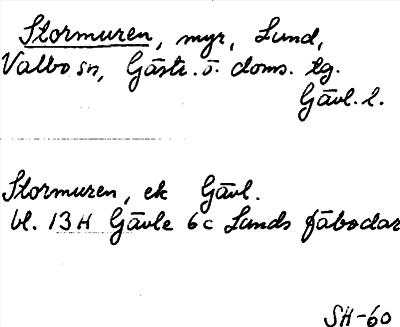 Stormuren, myr, Lund,
Valbo sn, Gästr. ö. doms. tg.
Gävl. l.
Stormuren, ek Gävl.
bl. 13 H Gävle 6c Lunds fäbodar
SH-60